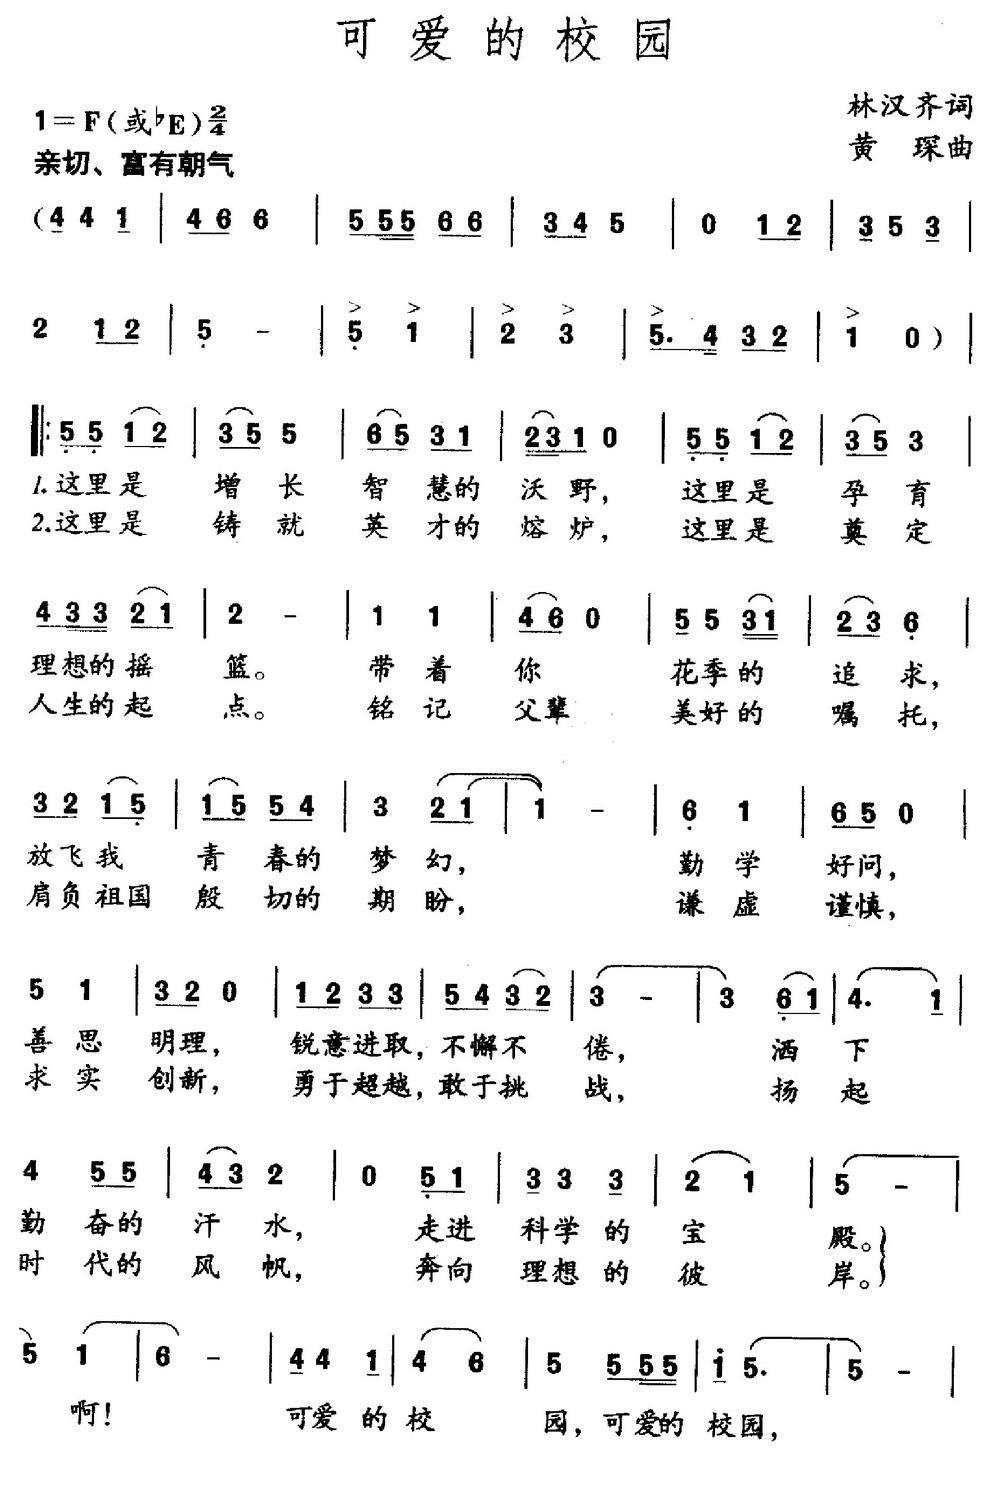 可爱的校园
林汉齐词
1=F(或♭E) 2/4
黄 琛曲
亲切、富有朝气
(4 4 1 | 4 6 6 | 5 5 5 6 6 | 3 4 5 | 0 1 2 | 3 5 3 |
2 1 2 | 5 - | 5 1 | 2 3 | 5. 4 3 2 | 1 0) |
‖: 5 5 1 2 | 3 5 5 | 6 5 3 1 | 2 3 1 0 | 5 5 1 2 | 3 5 3 |
1.这里是 增 长 智 慧的 沃 野, 这里是 孕 育
2.这里是 铸 就 英 才的 熔 炉, 这里是 奠 定
4 3 3 2 1 | 2 - | 1 1 | 4 6 0 | 5 5 3 1 | 2 3 6 |
理想的摇 篮。 带 着 你 花季的 追 求,
人生的起 点。 铭 记 父辈 美好的 嘱 托,
3 2 1 5 | 1 5 5 4 | 3 2 1 | 1 - | 6 1 | 6 5 0 |
放飞我 青 春的 梦 幻, 勤 学 好问,
肩负祖国 殷 切的 期 盼, 谦 虚 谨慎,
5 1 | 3 2 0 | 1 2 3 3 | 5 4 3 2 | 3 - | 3 6 1 | 4. 1 |
善 思 明理, 锐意进取, 不懈不 倦, 洒 下
求 实 创新, 勇于超越, 敢于挑 战, 扬 起
4 5 5 | 4 3 2 | 0 5 1 | 3 3 3 | 2 1 | 5 - |
勤 奋的 汗 水, 走进 科学 的 宝 殿。
时 代的 风 帆, 奔向 理想 的 彼 岸。
5 1 | 6 - | 4 4 1 | 4 6 | 5 5 5 5 | i 5. | 5 - |
啊! 可爱 的 校 园, 可爱的 校园,